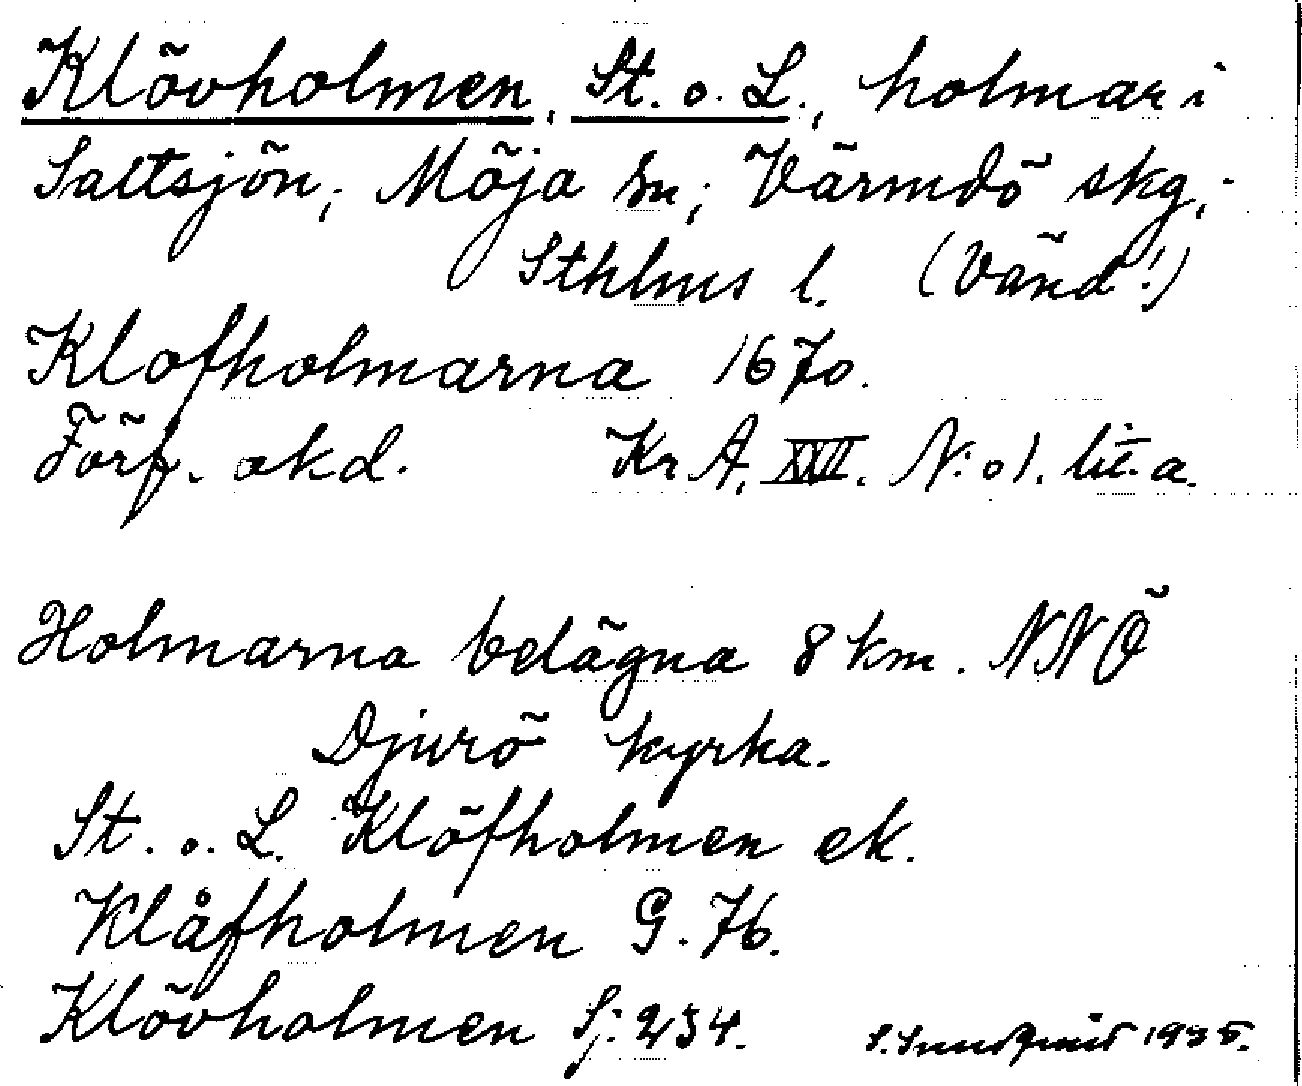 Klövholmen, St. o. L., holmar i
Saltsjön, Möja sn, Värmdö skg,
Sthlms l. (Vänd!)
Klofholmarna 1670.
Förf. okd. Kr A. XVII. N:o 1. litt. a.
Holmarna belägna 8 km. NNÖ
Djurö kyrka.
St. o. L. Klöfholmen ek.
Klåfholmen G. 76.
Klövholmen Sj: 234.
1935.